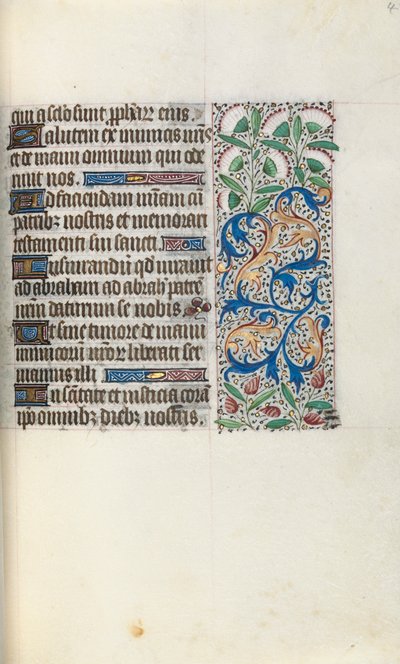 qui a sclo sunt pphar̄ eius.
Salutem ex inimicis nr̄is
et de manu omnium qui ode
runt nos.
Ad faciendam mīam cū
patribz nostris et memorari
testamenti sui sancti.
Iusiurandū qd̄ iurauit
ad abraham ad abrah patrē
nrm̄ daturum se nobis.
Ut sine timore de manu
inimicorū nr̄or liberati ser
uiamus illi.
In sc̄itate et iusticia corā
ip̄o omnibz diebz nostris.
4